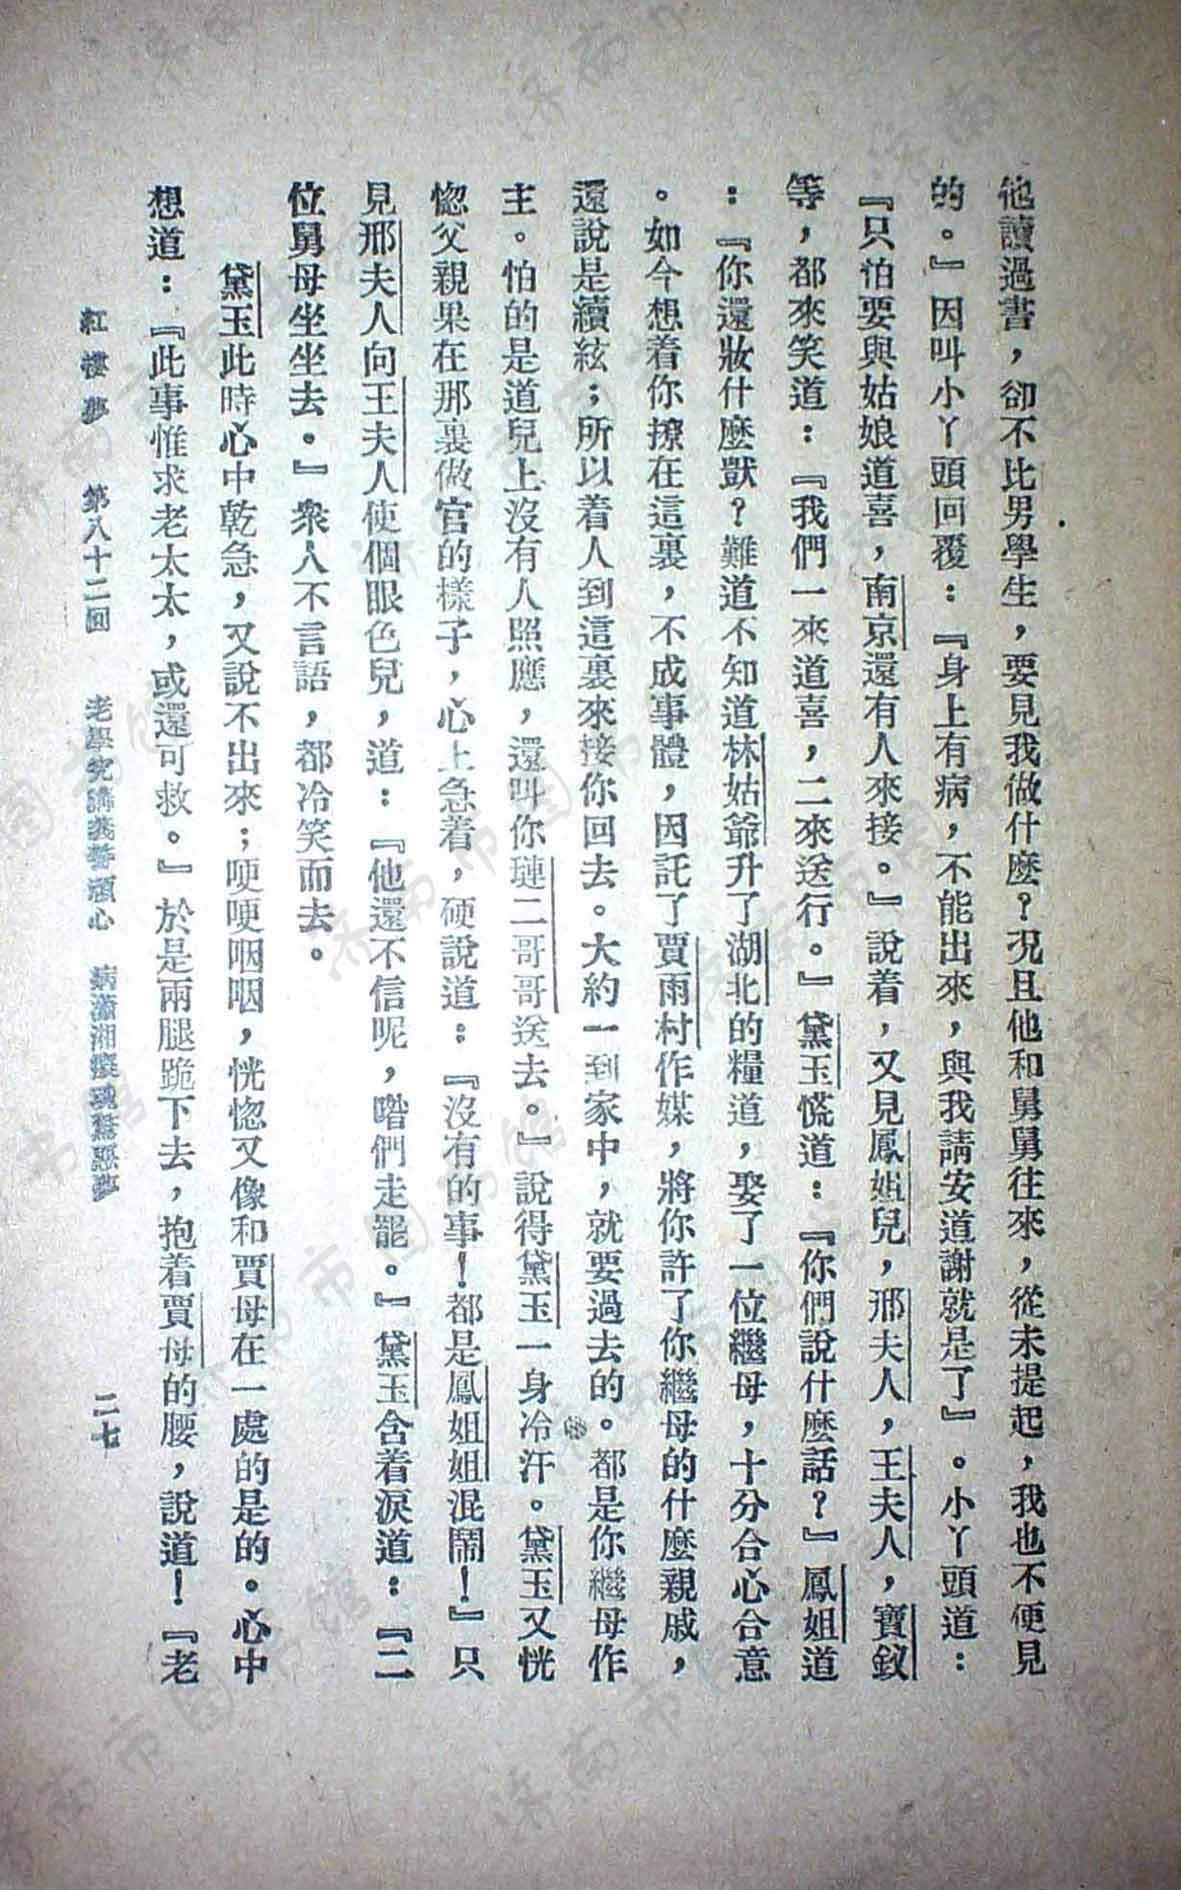 他讀過書，卻不比男學生，要見我做什麼？況且他和舅舅往來，從未提起，我也不便見
的。』因叫小丫頭回覆：『身上有病，不能出來，與我請安道謝就是了』。小丫頭道：
『只怕要與姑娘道喜，南京還有人來接。』說着，又見鳳姐兒，邢夫人，王夫人，寶釵
等，都來笑道：『我們一來道喜，二來送行。』黛玉慌道：『你們說什麼話？』鳳姐道
：『你還妝什麼獃？難道不知道林姑爺升了湖北的糧道，娶了一位繼母，十分合心合意
。如今想着你撩在這裏，不成事體，因託了賈雨村作媒，將你許了你繼母的什麼親戚，
還說是續絃；所以着人到這裏來接你回去。大約一到家中，就要過去的。都是你繼母作
主。怕的是道兒上沒有人照應，還叫你璉二哥哥送去。』說得黛玉一身冷汗。黛玉又恍
惚父親果在那裏做官的樣子，心上急着，硬說道：『沒有的事！都是鳳姐姐混鬧！』只
見邢夫人向王夫人使個眼色兒，道：『他還不信呢，喒們走罷。』黛玉含着淚道：『二
位舅母坐坐去。』衆人不言語，都冷笑而去。
黛玉此時心中乾急，又說不出來；哽哽咽咽，恍惚又像和賈母在一處的是的。心中
想道：『此事惟求老太太，或還可救。』於是兩腿跪下去，抱着賈母的腰，說道！『老
紅樓夢　第八十二回　老學究講義警頑心　病瀟湘癡魂驚惡夢　二七
济南市图书馆